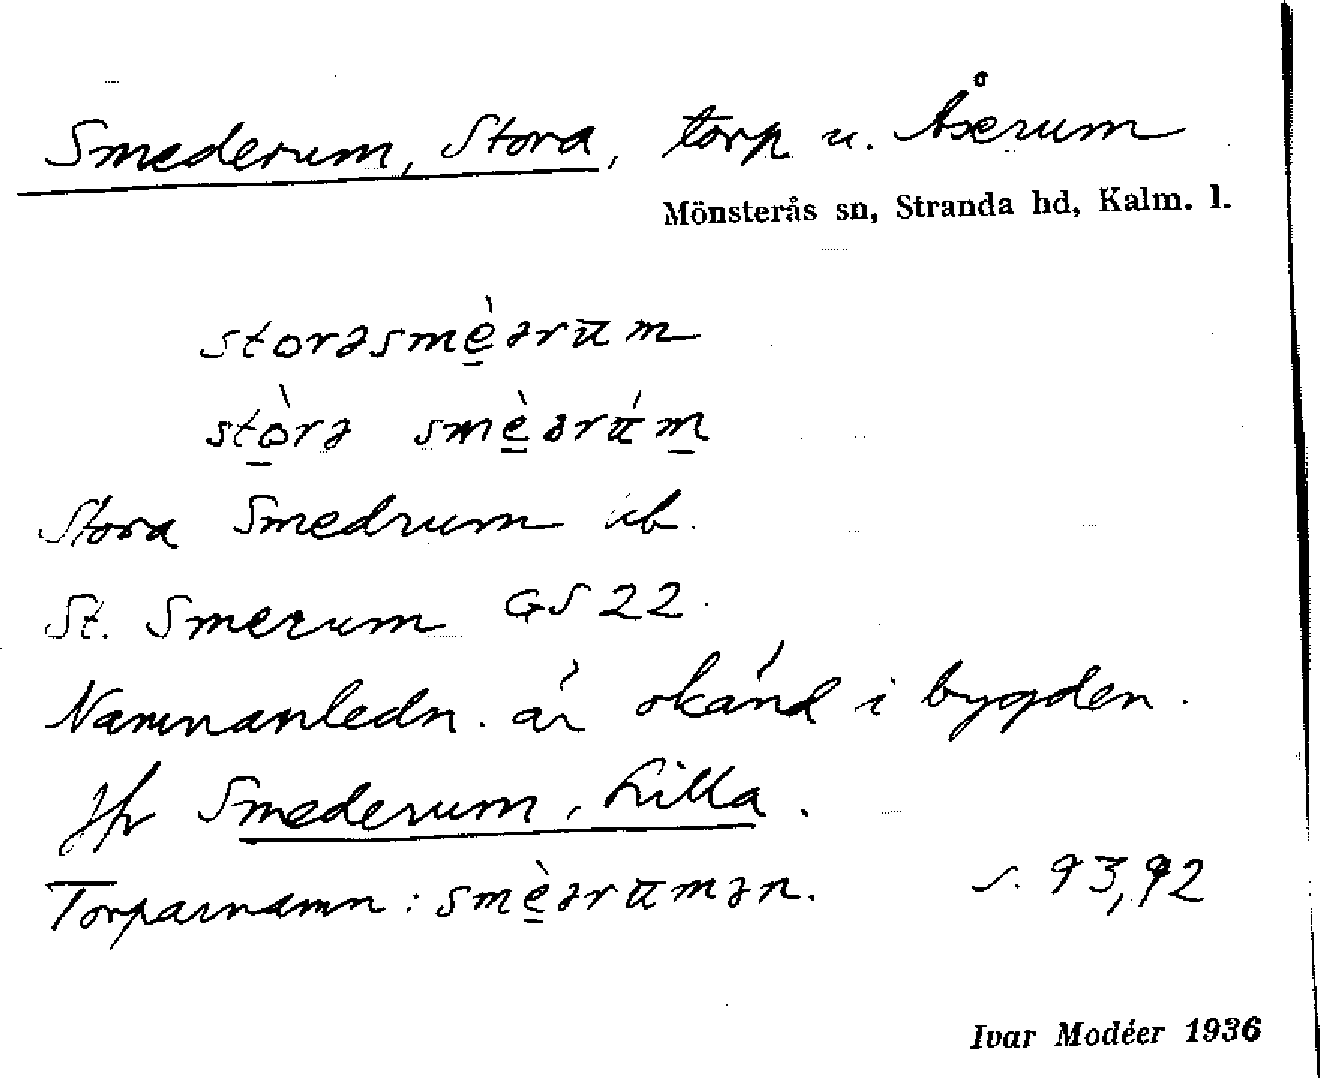 Smederum, Stora, torp u. Åserum
Mönsterås sn, Stranda hd, Kalm. l.
storəsmè̱ərum
stò̱rə smè̱ərúm̱
Stora Smedrum ib.
St. Smerum GS 22.
Namnanledn. är okänd i bygden.
Jfr Smederum, Lilla.
Torparnamn: smè̱ərumən. s. 93,92
Ivar Modéer 1936